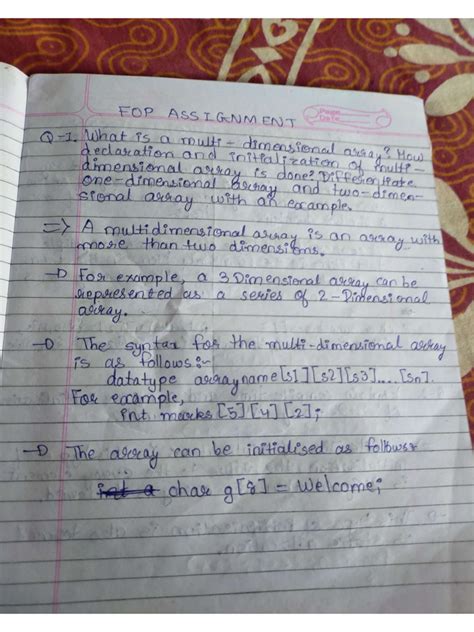 FOP ASSIGNMENT
Page
Date
Q-1. What is a multi-dimensional array? How
declaration and initialization of multi-
dimensional array is done? Differentiate
one-dimensional array and two-dimen-
sional array with an example.
=> A multidimensional array is an array with
more than two dimensions.
For example, a 3 Dimensional array can be
represented as a series of 2-Dimensional
array.
The syntax for the multi-dimensional array
is as follows:-
datatype arrayname[s1][s2][s3]....[sn].
For example,
int marks[5][4][2];
The array can be initialised as follows:
int a char g[8] = Welcome;